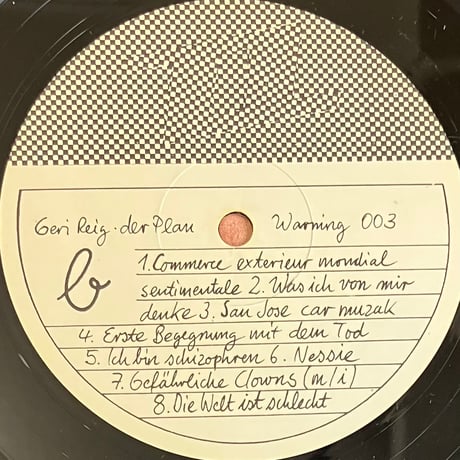 Geri Reig · der Plan Warning 003
b
1. Commerce exterieur mondial
sentimentale 2. Was ich von mir
denke 3. San Jose car muzak
4. Erste Begegnung mit dem Tod
5. Ich bin schizophren 6. Nessie
7. Gefährliche Clowns (m/i)
8. Die Welt ist schlecht